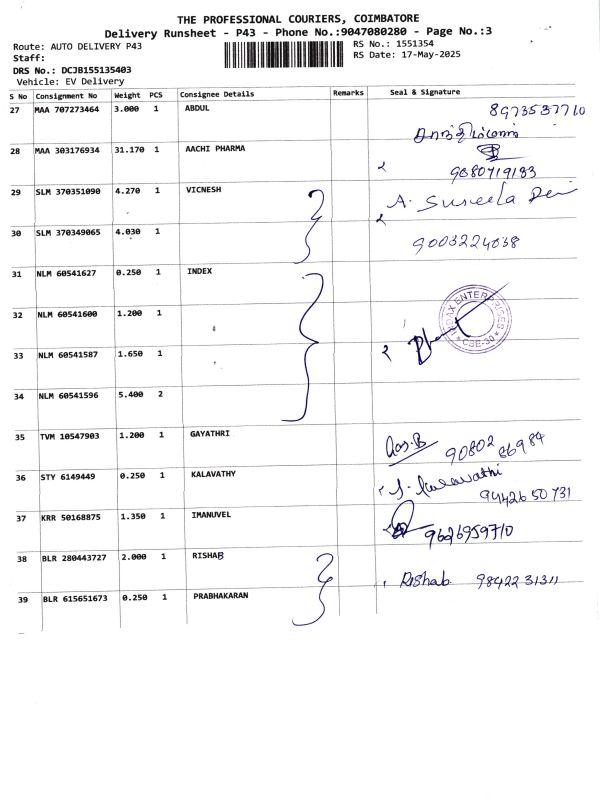 THE PROFESSIONAL COURIERS, COIMBATORE
Delivery Runsheet - P43 - Phone No.:9047080280 - Page No.:3
Route: AUTO DELIVERY P43
RS No.: 1551354
Staff:
RS Date: 17-May-2025
DRS No.: DCJB155135403
Vehicle: EV Delivery
S No Consignment No Weight PCS Consignee Details Remarks Seal & Signature
27 MAA 707273464 3.000 1 ABDUL 8973537710
28 MAA 303176934 31.170 1 AACHI PHARMA
9080719183
29 SLM 370351090 4.270 1 VICNESH A. Suseela Devi
30 SLM 370349065 4.030 1 9003224038
31 NLM 60541627 0.250 1 INDEX
32 NLM 60541600 1.200 1
ENTERPRISES
CBE-30
33 NLM 60541587 1.650 1
34 NLM 60541596 5.400 2
35 TVM 10547903 1.200 1 GAYATHRI 90802 86984
36 STY 6149449 0.250 1 KALAVATHY S. Kalavathi
9442650731
37 KRR 50168875 1.350 1 IMANUVEL 9626959710
38 BLR 280443727 2.000 1 RISHAB Rishab 9842231311
39 BLR 615651673 0.250 1 PRABHAKARAN